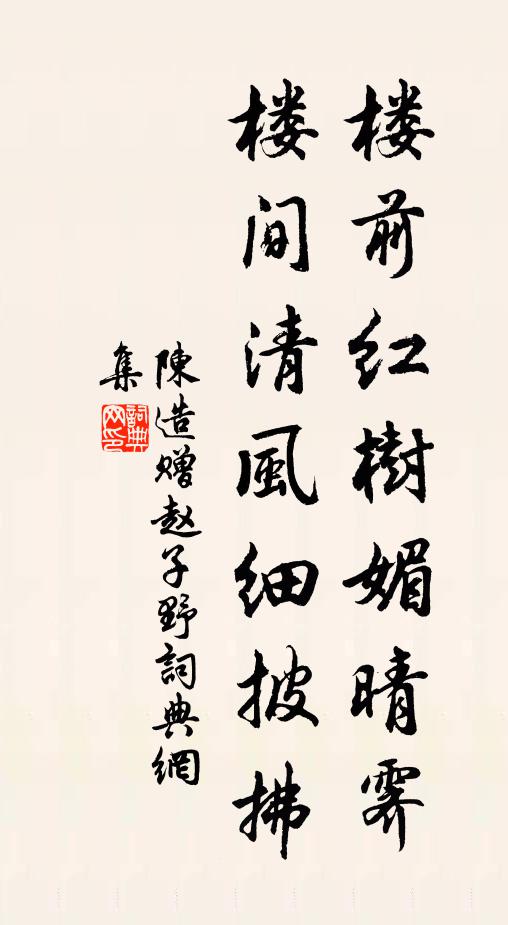 楼前红樹媚晴霽
楼间清風细披拂
陳造赠赵子野詞典網
集
詞典网印